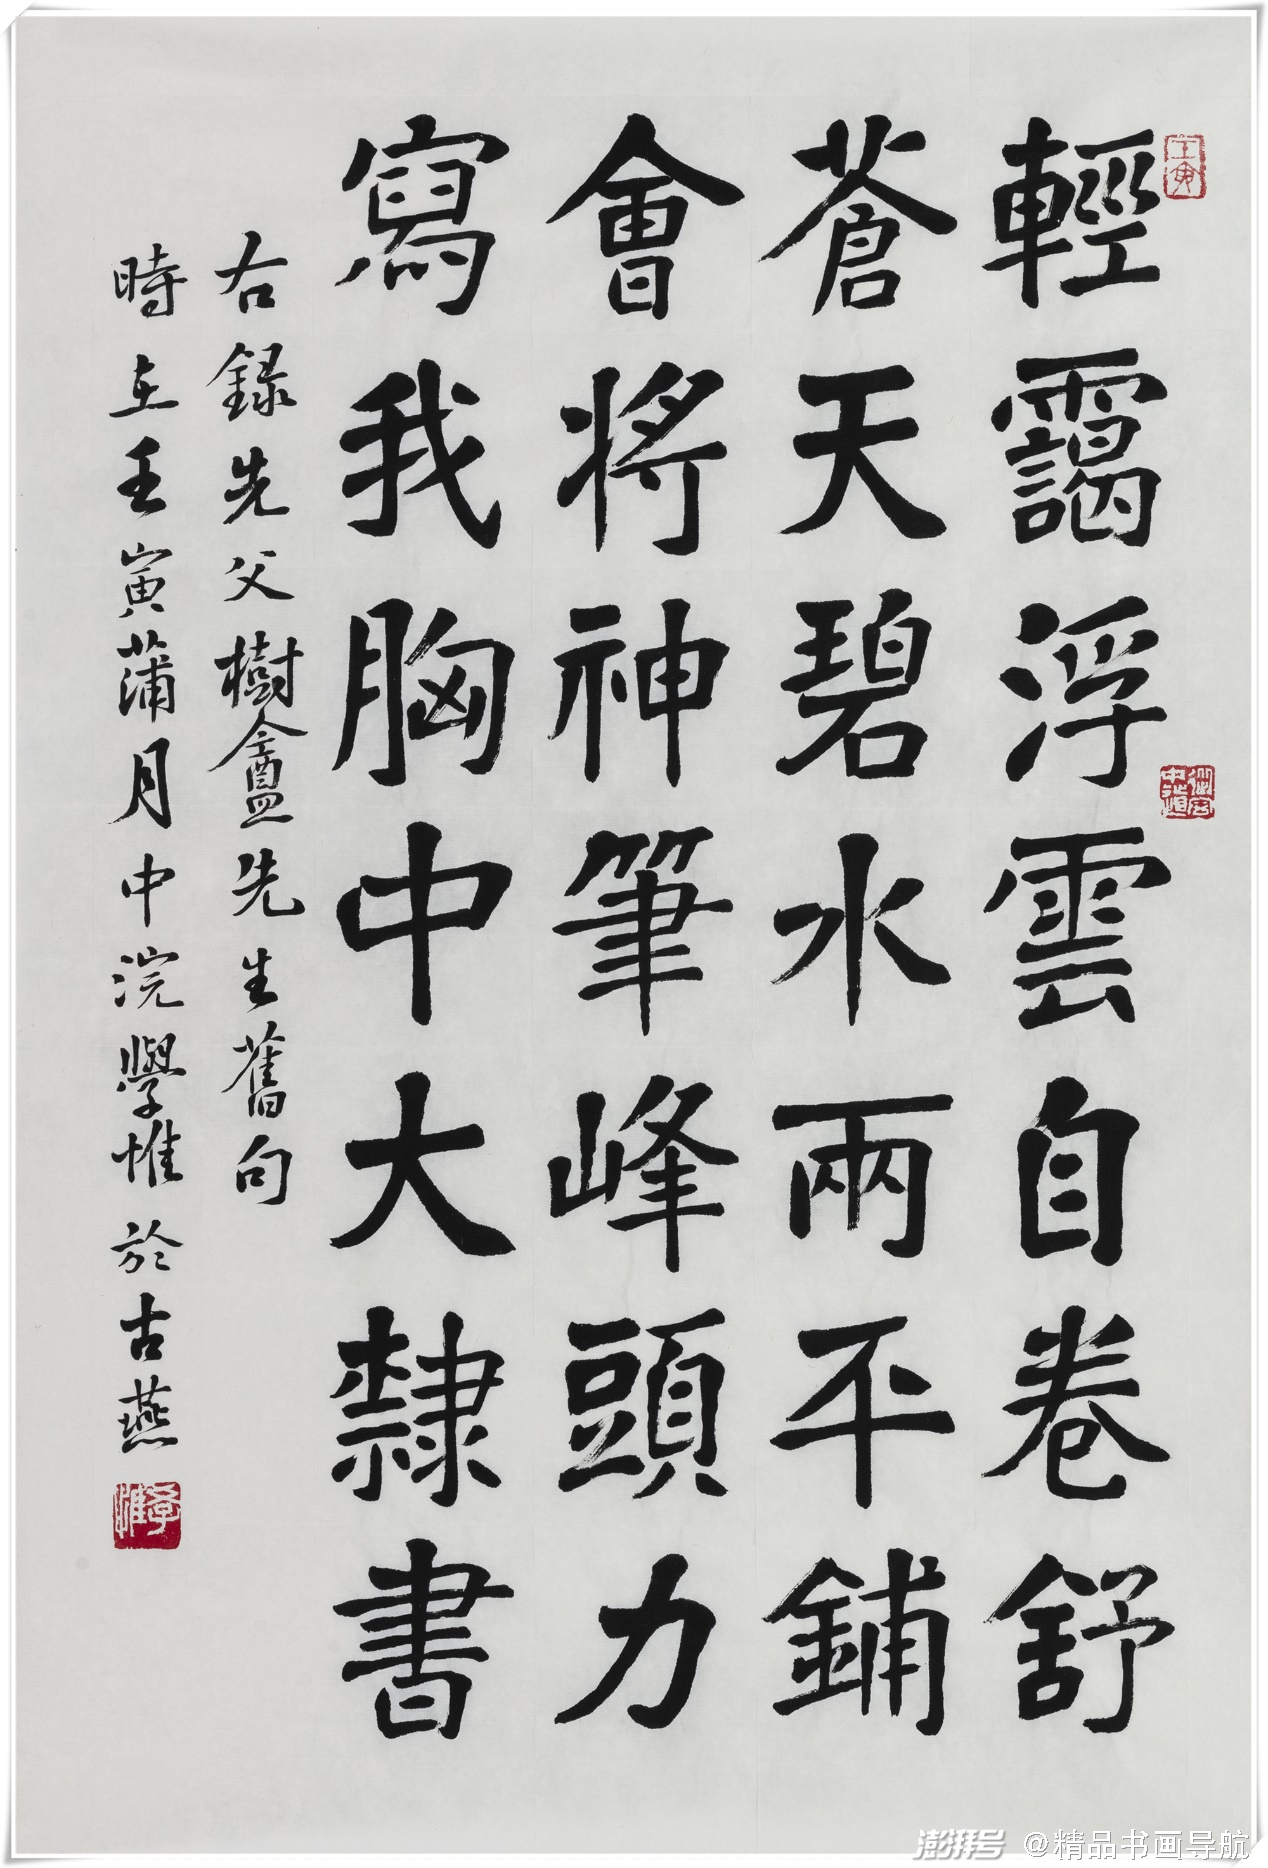 輕靄浮雲自卷舒
蒼天碧水兩平鋪
會將神筆峰頭力
寫我胸中大隸書
右録先父樹盦先生舊句
時在壬寅蒲月中浣學惟於古燕
壬寅
學惟
澎湃号 @精品书画导航